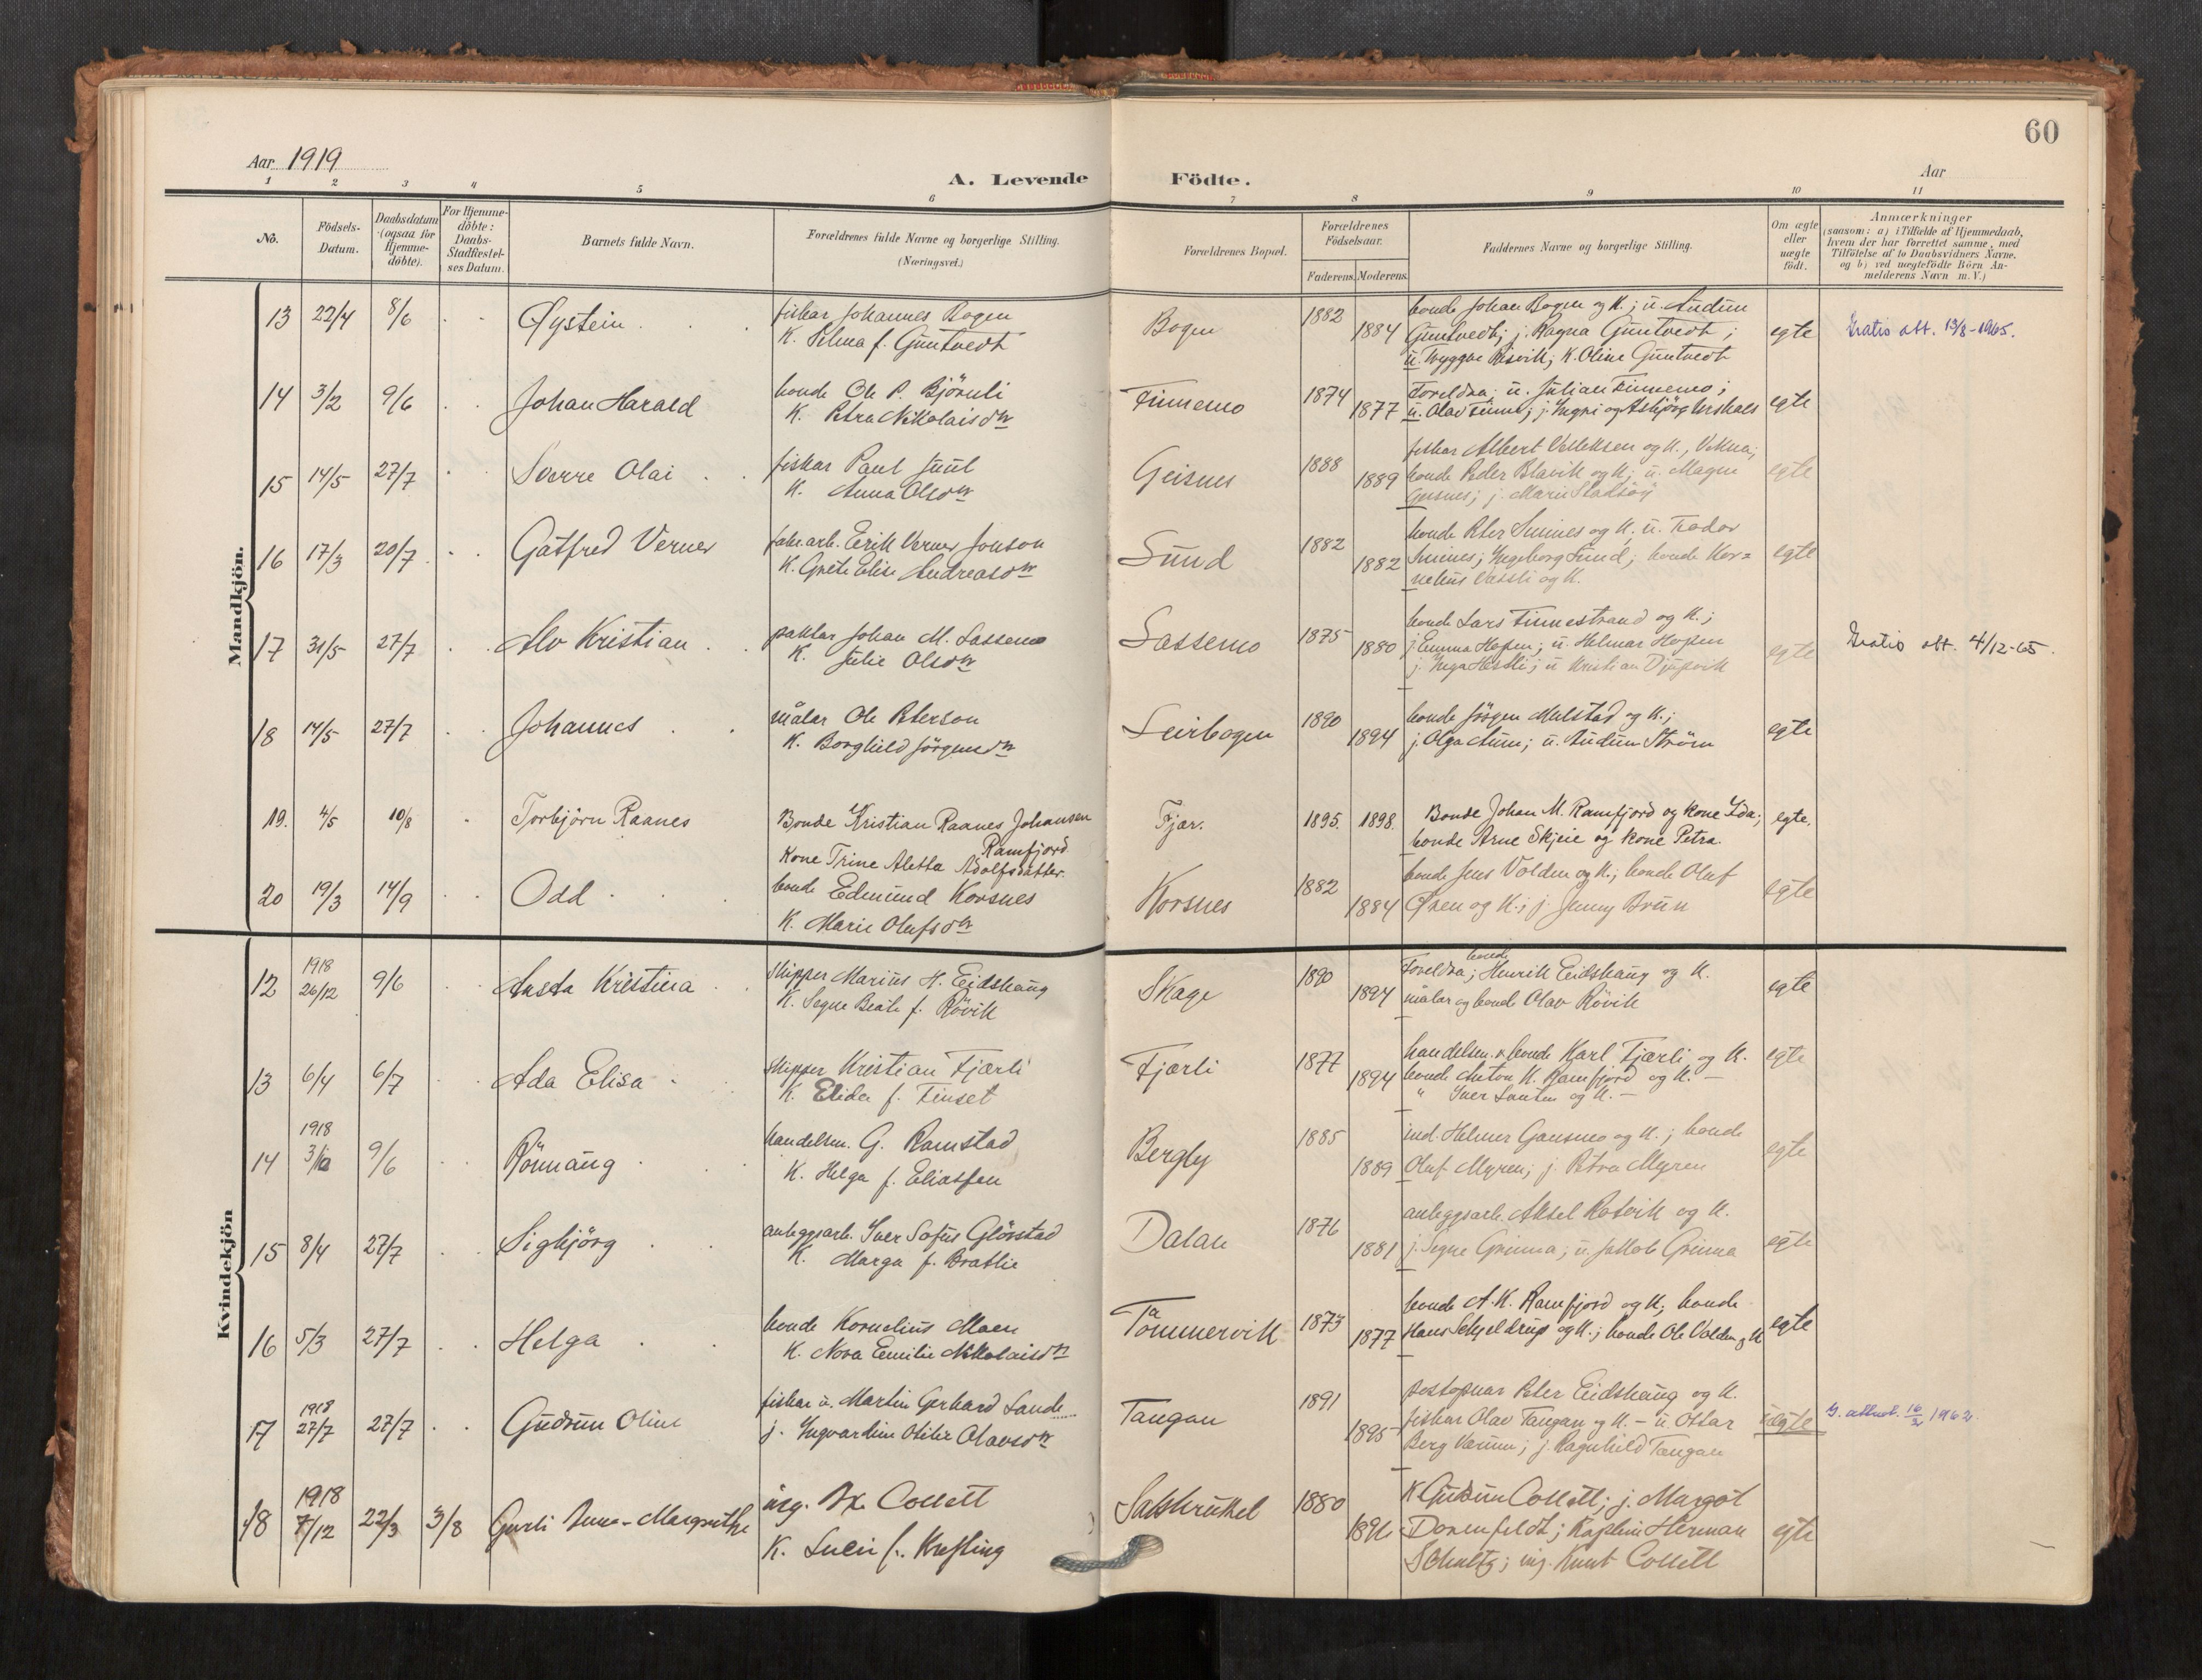 60
Aar 1919
Aar
A. Levende Fødte.
1 2 3 4 5 6 7 8 9 10 11
No.
Födsels-Datum.
Daabsdatum (ogsaa for Hjemme-döbte).
For Hjemme-döbte: Daabs-Stadfæstel-ses Datum.
Barnets fulde Navn.
Forældrenes fulde Navne og borgerlige Stilling.
(Næringsvei.)
Forældrenes Bopæl.
Forældrenes Födselsaar.
Faderens. Moderens.
Faddernes Navne og borgerlige Stilling.
Om ægte eller uægte födt.
Anmærkninger
(saasom: a) i Tilfælde af Hjemmedaab,
hvem der har forrettet samme, med
Tilföielse af to Daabsvidners Navne,
og b) ved uægtefödte Börn An-
melderens Navn m. V.)
Mandkjön.
13 22/4 8/6 Øystein
fiskar Johannes Bogen
K. Selma f. Guntvedt
Bogen 1882 1884
bonde Johan Bogen og K.; u. Audun
Guntvedt; j. Ragna Guntvedt;
u. Tryggve Risvik; K. Oline Guntvedt
egte
Gratis att. 13/8-1965.
14 3/2 9/6 Johan Harald
bonde Ole P. Björnli
K. Petra Nikolaisdtr
Finnemo 1874 1877
Foreldra; u. Julian Finnemo;
u. Olav Finne; j. Yngri og Asbjörg
egte
15 14/5 27/7 Sverre Olai
fiskar Paul Juul
K. Anna Olsdtr
Geisnes 1888 1889
fiskar Albert Velleksen og K., Vikna;
bonde Peder Blavik og K; u. Magne
Geisnes; j. Marie Stadsöy
egte
16 17/3 20/7 Gatfred Verner
fabr.arb. Erik Verner Jonson
K. Grete Elise Andreasdtr
Sund 1882 1882
bonde Peter Smines og K; u. Teodor
Smines; Yngeborg Sund; bonde Kor=
nelius og K.
egte
17 31/5 27/7 Alv Kristian
paktar Johan M. Sassemo
K. Julie Olsdtr
Sassemo 1875 1880
bonde Lars Finnestrand og K.;
j. Emma Hopen; u. Helmar Hopen
j. Ynga; u Kristian Djupvik
egte
Gratis att. 4/12-65.
18 14/5 27/7 Johannes
målar Ole Peterson
K. Borghild Jörgensdtr
Leirbogen 1890 1894
bonde Jörgen Mulstad og K.;
j. Olga Aune; u. Audun Ström
egte
19. 4/5 10/8 Torbjörn Raanes
Bonde Kristian Raanes Johansen
Ramfjord
Kone Trine Aletta Adolfsdatter.
Fjær. 1895. 1898.
Bonde Johan M. Ramfjord og kone Ida;
bonde Arne Skjeie og kone Petra.
egte.
20 19/3 14/9 Odd
bonde Edmund Korsnes
K. Marie Olufsdtr
Korsnes 1882 1884
bonde Jens Volden og K.; bonde Oluf
Øren og K.; j. Jenny Brun
egte
Kvindekjön
12 1918 26/12 9/6 Aasta Kristina
Skipper Marius H. Eidshaug
K. Segne Beate f. Rövik
Skage 1890 1894
Foreldra; bonde Henrik Eidshaug og K.
målar og bonde Olav Rövik
egte
13 6/4 6/7 Ada Elisa
Skipper Kristian Fjærli
K. Elida f. Finset
Fjærli 1877 1894
handelsm. & bonde Karl Fjærli og K.
bonde Anton K. Ramfjord og K. —
" Iver og K. —
egte
14 1918 3/12 9/6 Rönnaug
handelsm. G. Ramstad
K. Helga f. Eliassen
Bergly 1885 1889
ind. Helmer Gansmo og K.; bonde
Oluf Myren; j. Petra Myren
egte
15 8/4 27/7 Sigbjörg
anleggsarb. Iver Sofus Glörstad
K. Marga f. Bratlie
Dalan 1876 1881
anleggsarb. Aksel Rotvik og K.
j. Segne Grinna; u. Jakob Grinna
egte
16 5/3 27/7 Helga
bonde Kornelius Moen
K. Nora Emilie Nikolaisdtr
Tommervik 1873 1877
bonde A. K. Ramfjord og K; bonde
Hans Schjeldrup og K.; bonde Ole Volden og K
egte
17 1918 27/7 27/7 Gudrun Oline
fiskar u. Martin Gerhard Sande
j. Yngvardine Otilie Olavsdtr
Tangan 1891 1895
postopnar Peter Eidshaug og K.
fiskar Olav Tangan og K. – u Ottar
Berg Værum; j. Ragnhild Tangan
uegte
G. attest. 16/2 1962.
18 1918 7/12 22/3 3/8 Gurli Anna-Margrethe
ing. Ax. Collett
K. Lucie f. Krefting
Salsbrukket 1880 1896
K Gudrun Collett; j. Margot
Donenfeldt; Kaptein Herman
Schultz; ing. Knut Collett
egte